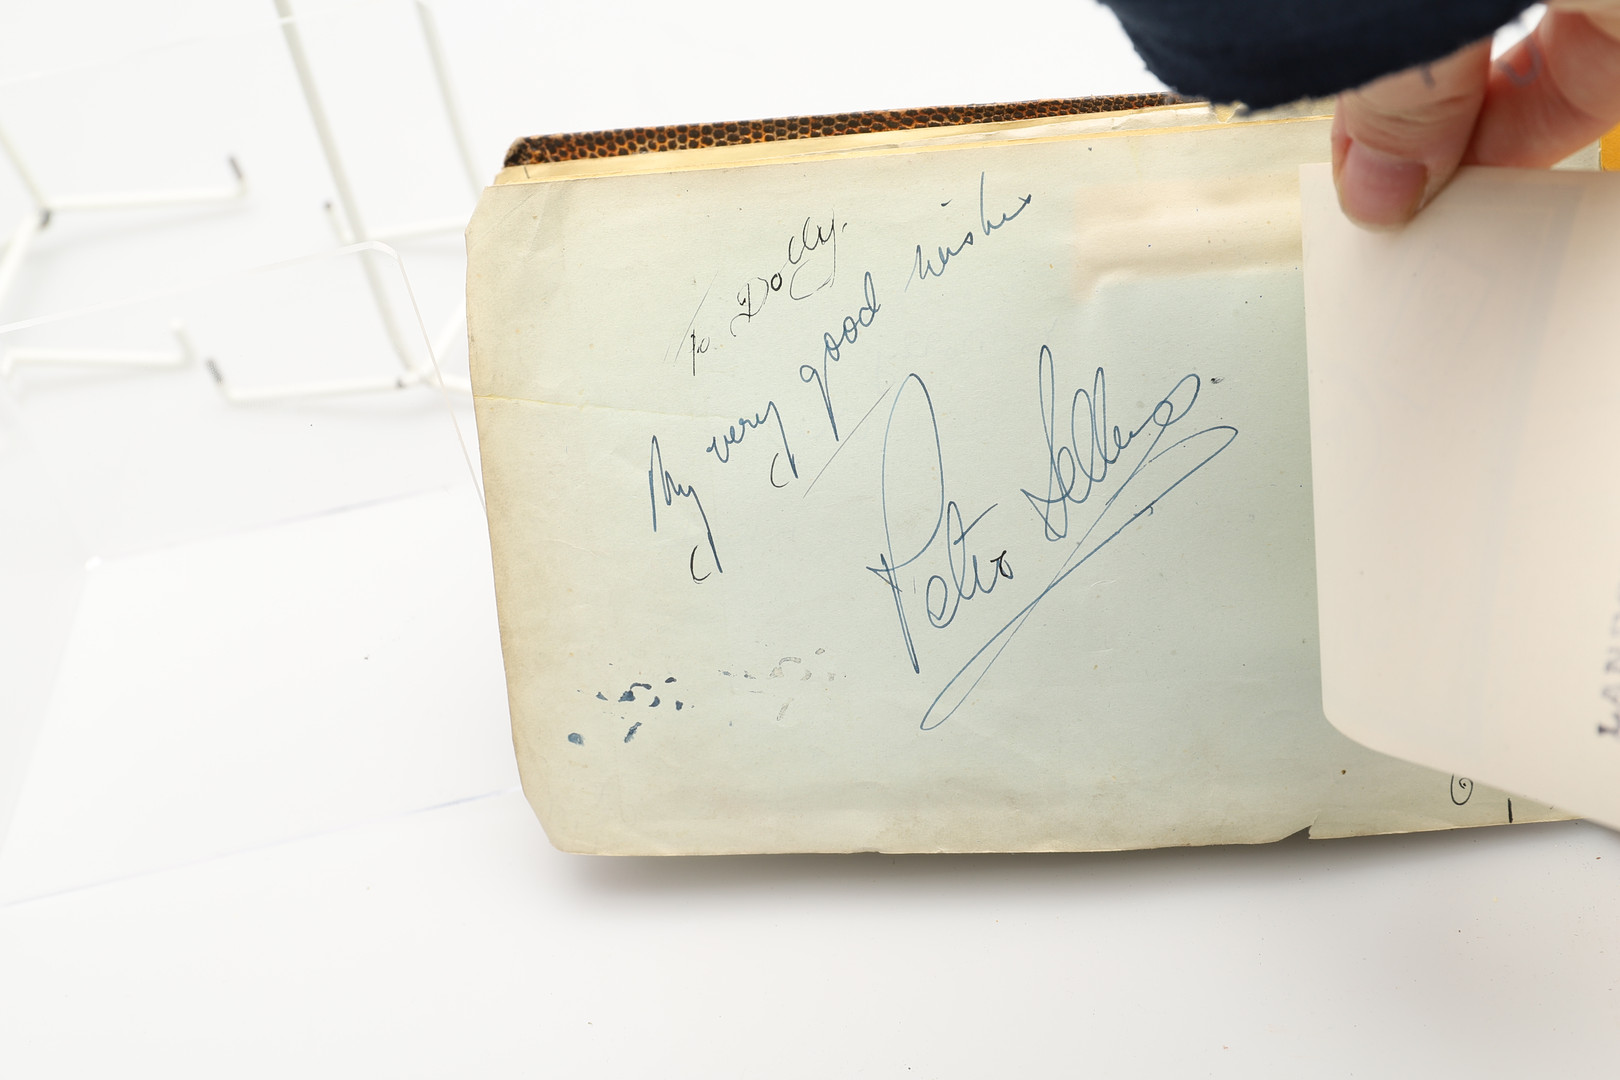 To Dolly.
My very good wishes
Peter Sellers